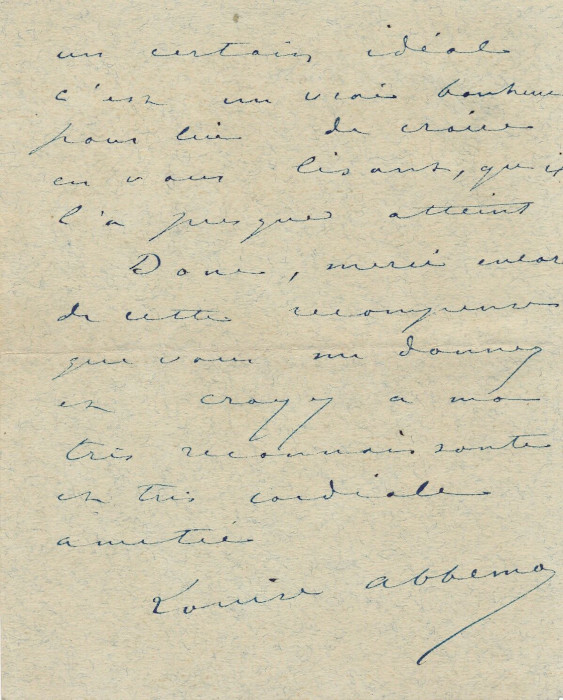 un certain idéal
c'est un vrai bonheur
pour lui de croire
en vous lisant, qu'il
l'a presque atteint
Donc, merci encore
de cette recompense
que vous me donnez
et croyez a ma
très reconnaissante
et très cordiale
amitié
Louise Abbema